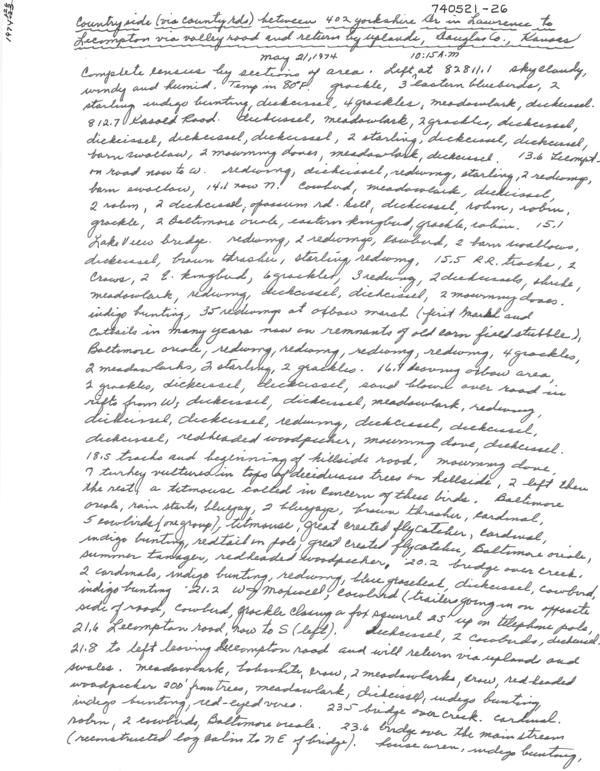 740521-26
Countryside (via county rds) between 402 Yorkshire Dr in Lawrence to
Lecompton via valley road and return by uplands, Douglas Co., Kansas
May 21, 1974 10:15 A.M
Complete census by sections of area. Left at 8281.1 sky cloudy,
windy and humid. Temp in 80°F. grackle, 3 eastern bluebirds, 2
starling, indigo bunting, dickcissel, 4 grackles, meadowlark, dickcissel.
812.7 Kasold Road. dickcissel, meadowlark, 2 grackles, dickcissel,
dickcissel, dickcissel, dickcissel, 2 starling, dickcissel, dickcissel,
barn swallow, 2 mourning doves, meadowlark, dickcissel. 13.6 Lecompt-
on road now to W. redwing, dickcissel, redwing, starling, 2 redwings,
barn swallow, 14.1 now N. Cowbird, meadowlark, dickcissel,
2 robin, 2 dickcissel, opossum rd. kill, dickcissel, robin, robin,
grackle, 2 Baltimore oriole, eastern kingbird, grackle, robin. 15.1
Lake View bridge. redwing, 2 redwings, cowbird, 2 barn swallows,
dickcissel, brown thrasher, starling, redwing, 15.5 R.R. tracks, 2
crows, 2 E. kingbird, 6 grackles, 3 redwing, 2 dickcissels, shrike,
meadowlark, redwing, dickcissel, dickcissel, 2 mourning doves.
indigo bunting, 35 redwings at oxbow marsh (first marsh and
cattails in many years now on remnants of old corn field stubble),
Baltimore oriole, redwing, redwing, redwing, redwing, 4 grackles,
2 meadowlarks, 2 starling, 2 grackles. 16.9 leaving oxbow area,
2 grackles, dickcissel, dickcissel, sand blown over road in
rifts from W, dickcissel, dickcissel, meadowlark, redwing,
dickcissel, dickcissel, redwing, dickcissel, dickcissel,
dickcissel, redheaded woodpecker, mourning dove, dickcissel.
18.5 tracks and beginning of hillside road. mourning dove,
7 turkey vultures in tops of deciduous trees on hillside, 2 left then
the rest, a titmouse called in concern of these birds. Baltimore
oriole, rain starts, bluejay, 2 bluejays, brown thrasher, cardinal,
5 cowbirds (one group), titmouse, great crested flycatcher, cardinal,
indigo bunting, redtail on pole, great crested flycatcher, Baltimore oriole,
summer tanager, redheaded woodpecker, 20.2 bridge over creek.
2 cardinals, indigo bunting, redwing, blue grosbeak, dickcissel, cowbird,
indigo bunting 21.2 W of Maxwell, cowbird (trailers going in on opposite
side of road, cowbird, grackle chasing a fox squirrel 25' up on telephone pole,
21.6 Lecompton road, now to S (left). dickcissel, 2 cowbirds, dickcissel.
21.8 to left leaving Lecompton road and will return via upland and
swales. meadowlark, bobwhite, crow, 2 meadowlarks, crow, red headed
woodpecker 200' from trees, meadowlark, dickcissel, indigo bunting,
indigo bunting, red-eyed vireo. 23.5 bridge over creek. cardinal.
robin, 2 cowbirds, Baltimore oriole. 23.6 bridge over the main stream
(reconstructed log cabin to NE of bridge). house wren, indigo bunting,